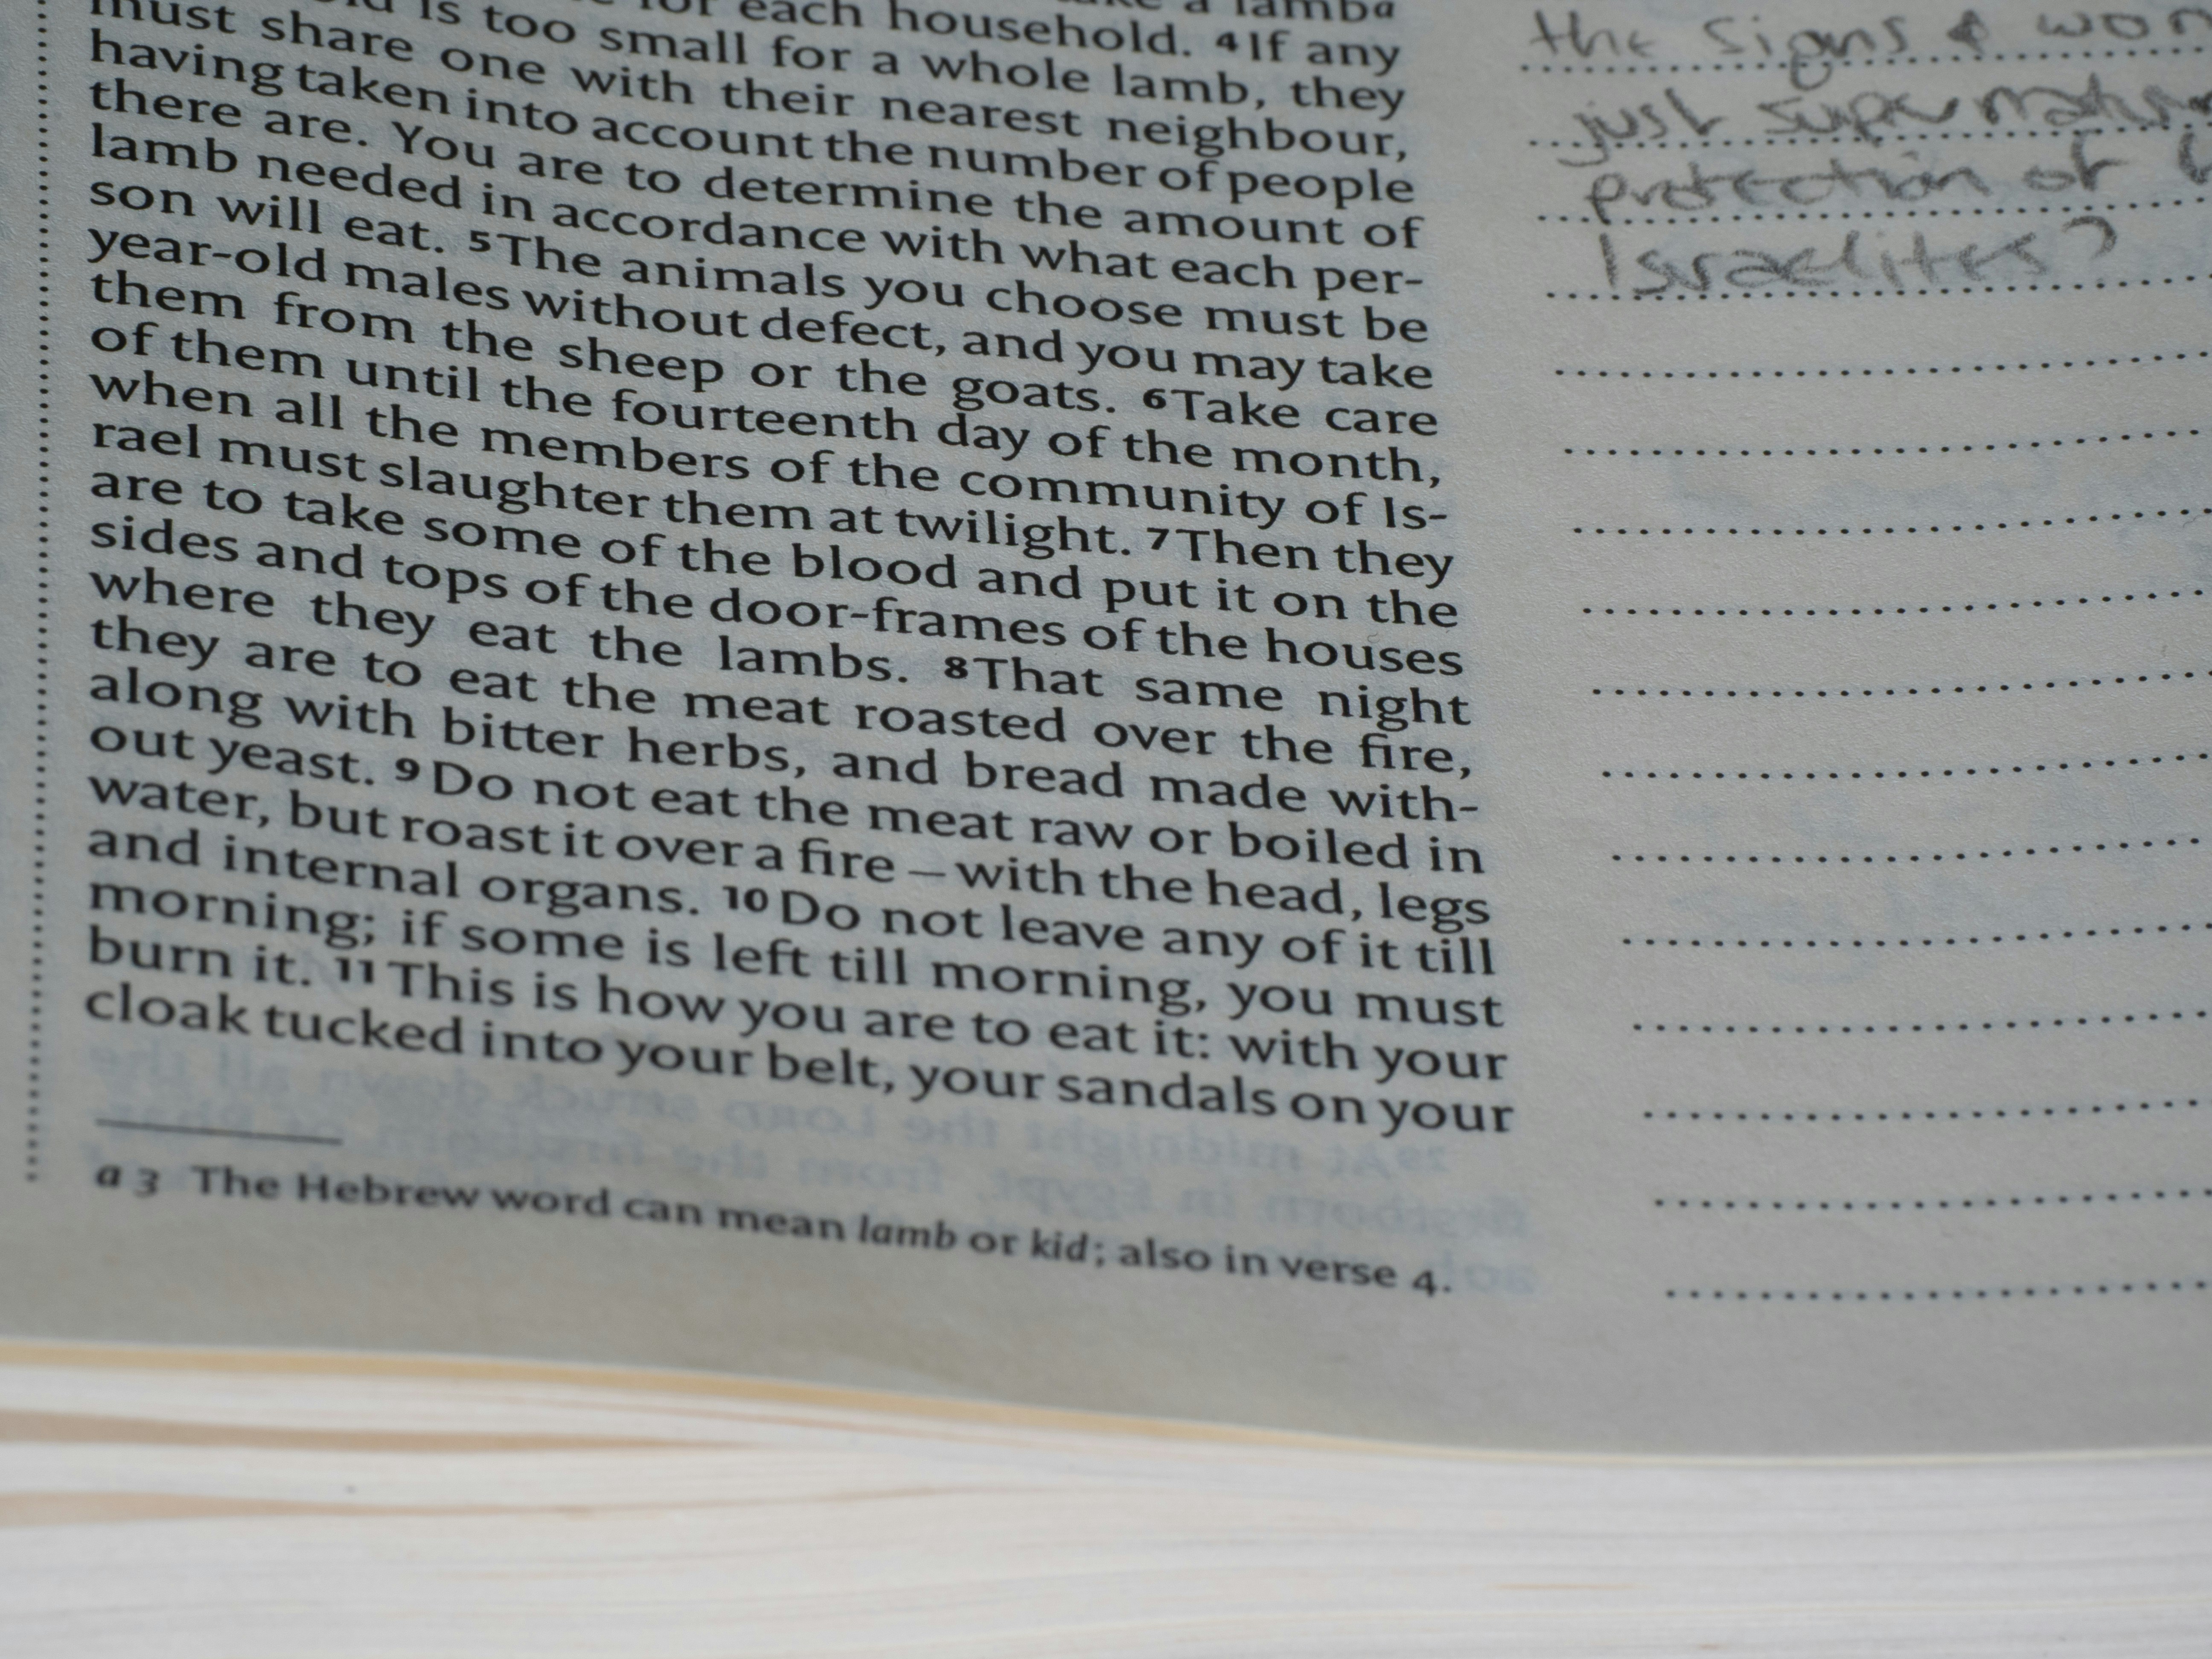 for each household. 4 If any
is too small for a whole lamb, they
must share one with their nearest neighbour,
having taken into account the number of people
there are. You are to determine the amount of
lamb needed in accordance with what each per-
son will eat. 5 The animals you choose must be
year-old males without defect, and you may take
them from the sheep or the goats. 6 Take care
of them until the fourteenth day of the month,
when all the members of the community of Is-
rael must slaughter them at twilight. 7 Then they
are to take some of the blood and put it on the
sides and tops of the door-frames of the houses
where they eat the lambs. 8 That same night
they are to eat the meat roasted over the fire,
along with bitter herbs, and bread made with-
out yeast. 9 Do not eat the meat raw or boiled in
water, but roast it over a fire – with the head, legs
and internal organs. 10 Do not leave any of it till
morning; if some is left till morning, you must
burn it. 11 This is how you are to eat it: with your
cloak tucked into your belt, your sandals on your
a 3 The Hebrew word can mean lamb or kid; also in verse 4.
the signs &
just
protection of
Israelites?